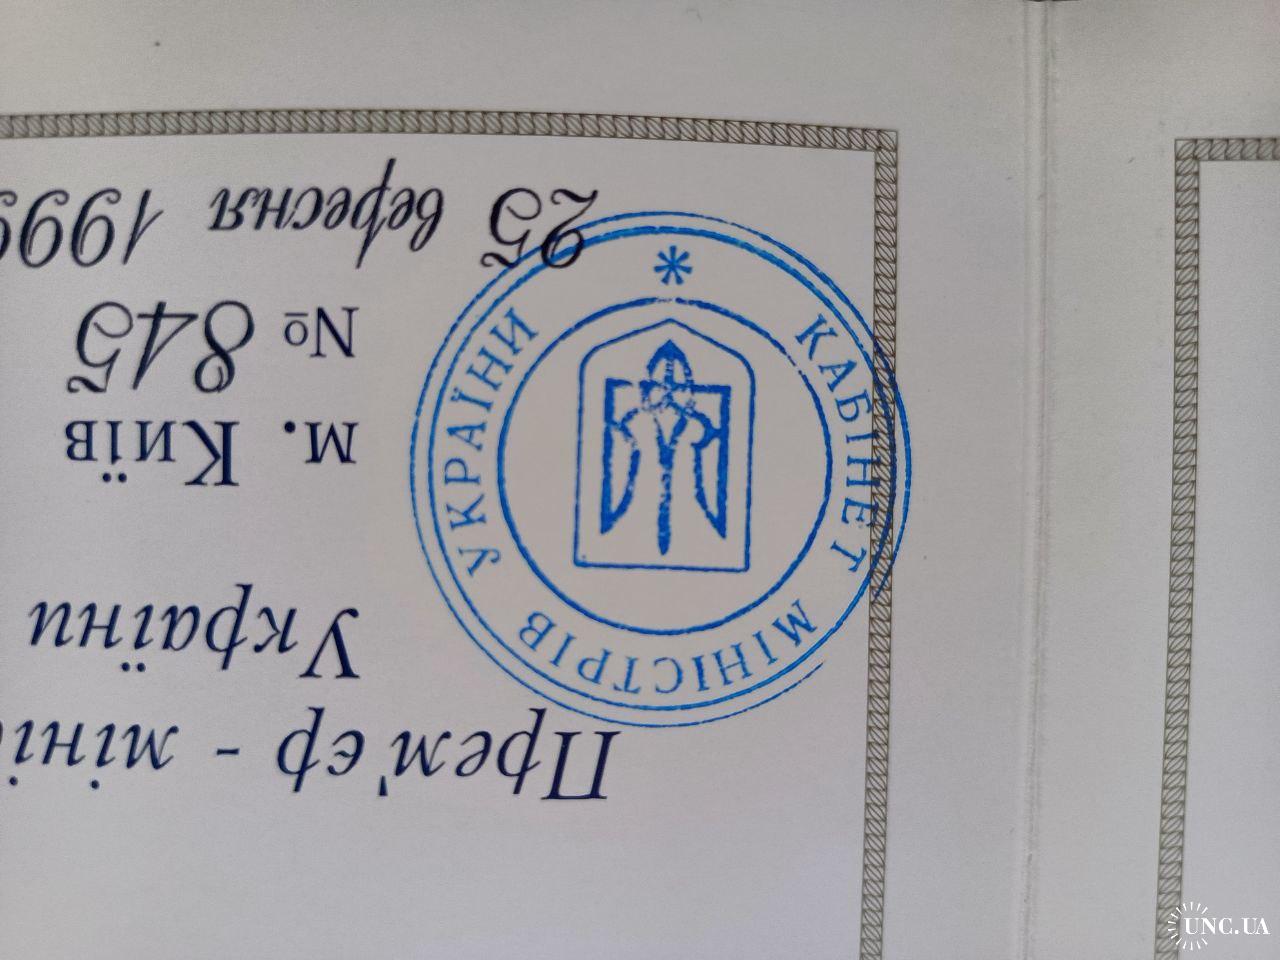 Прем'єр - міні
України
м. Київ
№ 845
25 вересня 1999
КАБІНЕТ МІНІСТРІВ УКРАЇНИ *
UNC.UA